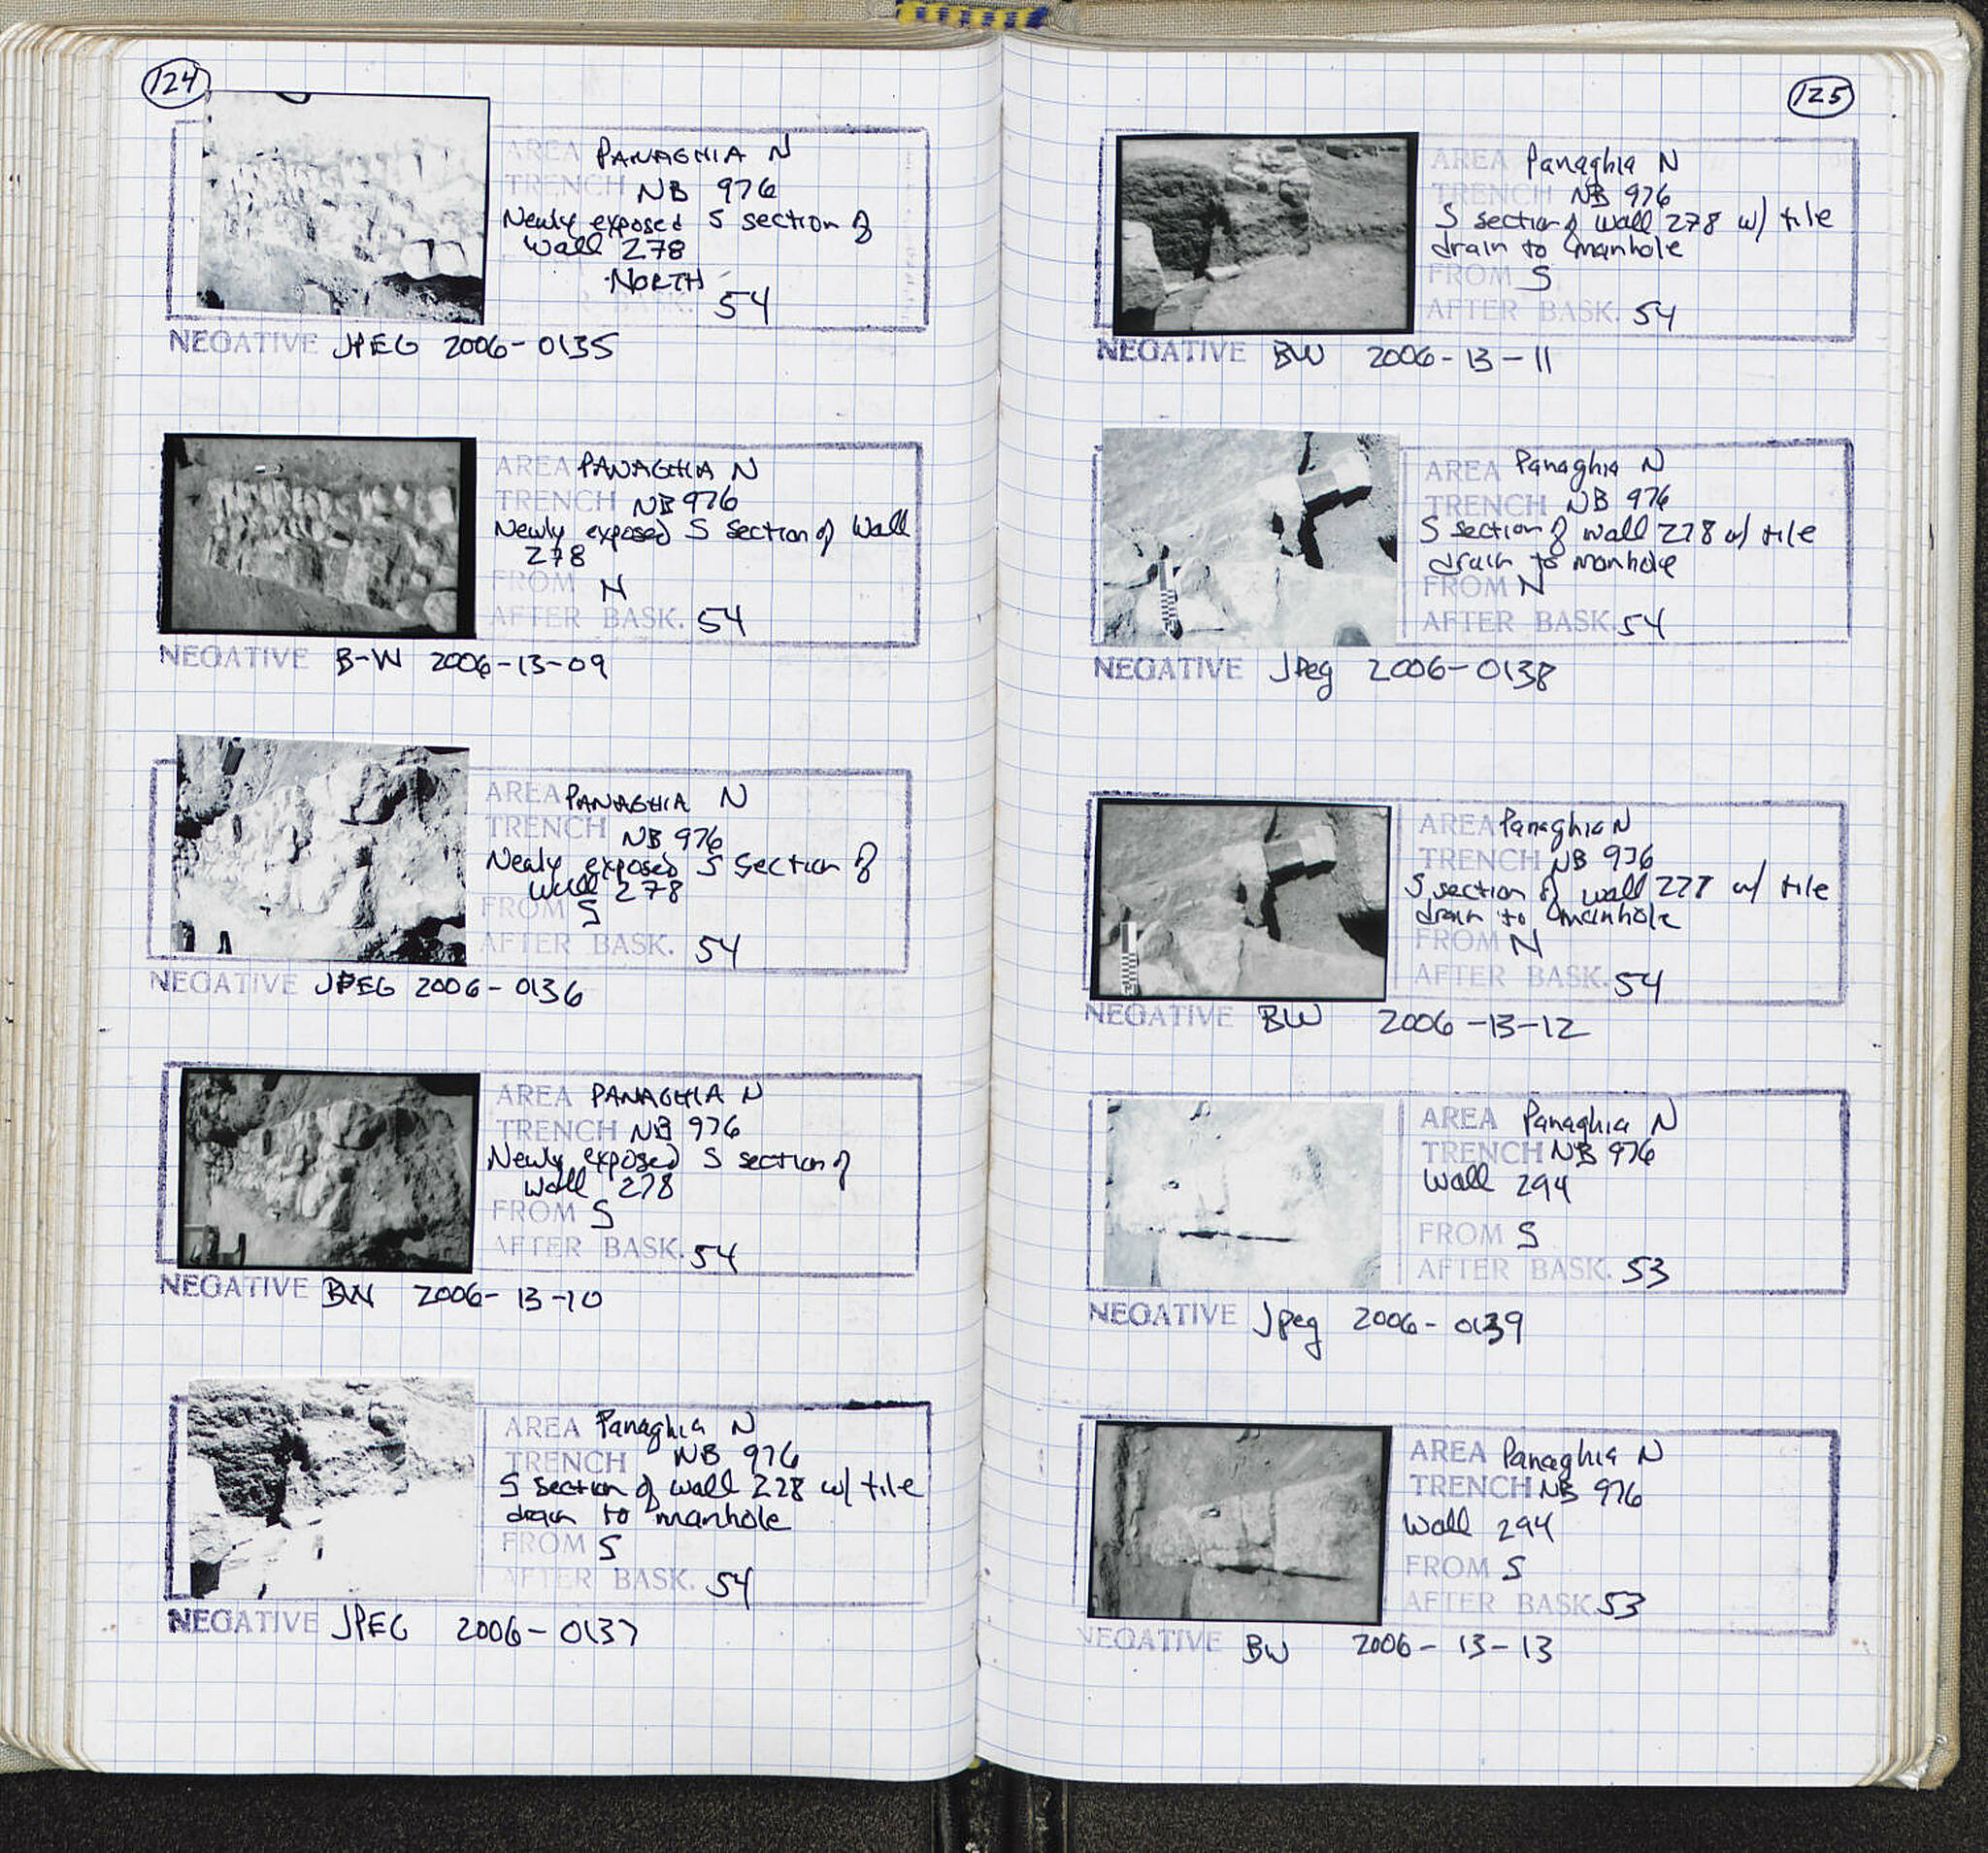 124
AREA PANAGHIA N
TRENCH NB 976
Newly exposed S section of
wall 278
NORTH
BASK. 54
NEGATIVE JPEG 2006-0135
AREA PANAGHIA N
TRENCH NB 976
Newly exposed S section of Wall
278
FROM N
AFTER BASK. 54
NEGATIVE B-W 2006-13-09
AREA PANAGHIA N
TRENCH NB 976
Newly exposed S section of
wall 278
FROM S
AFTER BASK. 54
NEGATIVE JPEG 2006-0136
AREA PANAGHIA N
TRENCH NB 976
Newly exposed S section of
wall 278
FROM S
AFTER BASK. 54
NEGATIVE BW 2006-13-10
AREA Panaghia N
TRENCH NB 976
S section of wall 278 w/ tile
drain to manhole
FROM S
AFTER BASK. 54
NEGATIVE JPEG 2006-0137
125
AREA Panaghia N
TRENCH NB 976
S section of wall 278 w/ tile
drain to manhole
FROM S
AFTER BASK. 54
NEGATIVE BW 2006-13-11
AREA Panaghia N
TRENCH NB 976
S section of wall 278 w/ tile
drain to manhole
FROM N
AFTER BASK. 54
NEGATIVE Jpeg 2006-0138
AREA Panaghia N
TRENCH NB 976
S section of wall 278 w/ tile
drain to manhole
FROM N
AFTER BASK. 54
NEGATIVE BW 2006-13-12
AREA Panaghia N
TRENCH NB 976
Wall 294
FROM S
AFTER BASK. 53
NEGATIVE Jpeg 2006-0139
AREA Panaghia N
TRENCH NB 976
Wall 294
FROM S
AFTER BASK. 53
NEGATIVE BW 2006-13-13